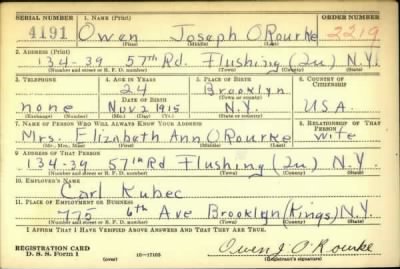 SERIAL NUMBER 1. NAME (Print) ORDER NUMBER
4191 Owen Joseph O'Rourke 2219
(First) (Middle) (Last)
2. ADDRESS (Print)
134-39 57th Rd. Flushing (Qu) N.Y.
(Number and street or R. F. D. number) (Town) (County) (State)
3. TELEPHONE 4. AGE IN YEARS 5. PLACE OF BIRTH 6. COUNTRY OF CITIZENSHIP
24 Brooklyn
DATE OF BIRTH (Town or county)
none Nov 2 1915 N.Y. U.S.A.
(Exchange) (Number) (Mo.) (Day) (Yr.) (State or country)
7. NAME OF PERSON WHO WILL ALWAYS KNOW YOUR ADDRESS 8. RELATIONSHIP OF THAT PERSON
Mrs. Elizabeth Ann O'Rourke wife
(Mr., Mrs., Miss) (First) (Middle) (Last)
9. ADDRESS OF THAT PERSON
134-39 57th Rd Flushing (Qu) N.Y.
(Number and street or R. F. D. number) (Town) (County) (State)
10. EMPLOYER'S NAME
Carl Kubec
11. PLACE OF EMPLOYMENT OR BUSINESS
775 6th Ave Brooklyn (Kings) N.Y.
(Number and street or R. F. D. number) (Town) (County) (State)
I AFFIRM THAT I HAVE VERIFIED ABOVE ANSWERS AND THAT THEY ARE TRUE.
REGISTRATION CARD
D. S. S. Form 1 (over) 16-17105 Owen J O'Rourke
(Registrant's signature)